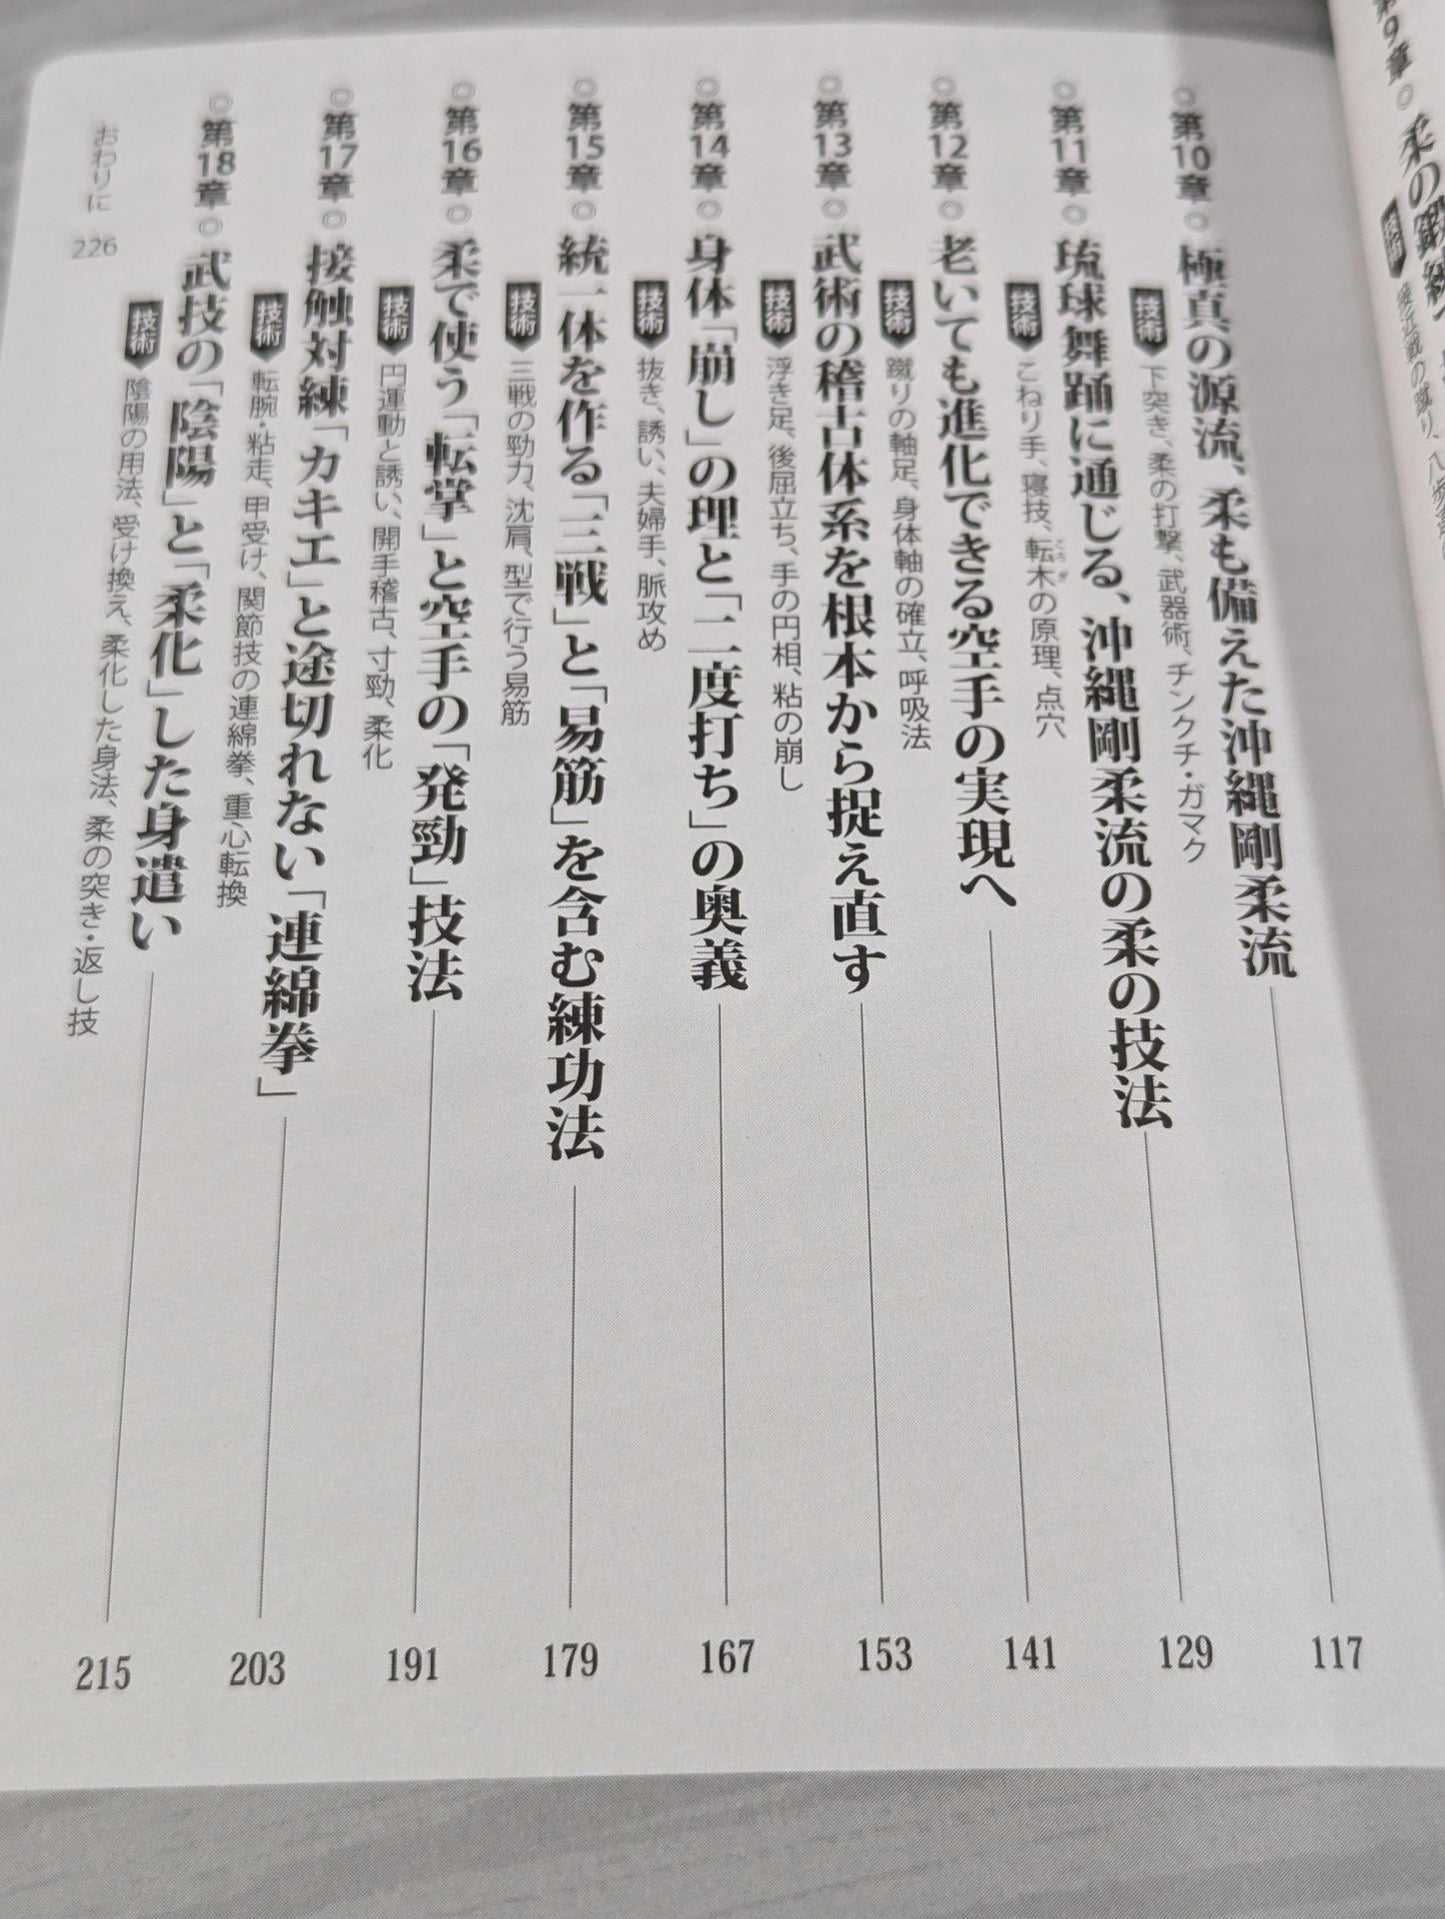 第9章◎柔の鍛練へ
技術
◎第10章◎極真の源流、柔も備えた沖縄剛柔流 117
技術 下突き、柔の打撃、武器術、チンクチ・ガマク
◎第11章◎琉球舞踊に通じる、沖縄剛柔流の柔の技法 129
技術 こねり手、寝技、転木の原理、点穴
◎第12章◎老いても進化できる空手の実現へ 141
技術 蹴りの軸足、身体軸の確立、呼吸法
◎第13章◎武術の稽古体系を根本から捉え直す 153
技術 浮き足、後屈立ち、手の円相、粘の崩し
◎第14章◎身体「崩し」の理と「二度打ち」の奥義 167
技術 抜き、誘い、夫婦手、脈攻め
◎第15章◎統一体を作る「三戦」と「易筋」を含む練功法 179
技術 三戦の勁力、沈肩、型で行う易筋
◎第16章◎柔で使う「転掌」と空手の「発勁」技法 191
技術 円運動と誘い、開手稽古、寸勁、柔化
◎第17章◎接触対練「カキエ」と途切れない「連綿拳」 203
技術 転腕・粘走、甲受け、関節技の連綿拳、重心転換
◎第18章◎武技の「陰陽」と「柔化」した身遣い 215
技術 陰陽の用法、受け換え、柔化した身法、柔の突き・返し技
おわりに 226